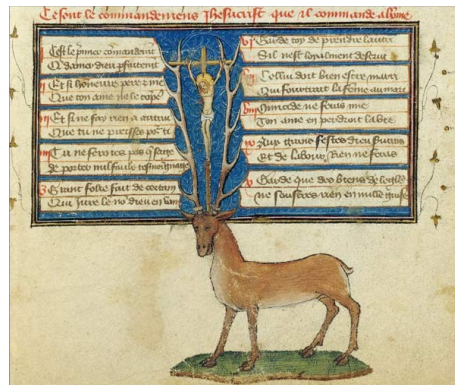 Ce sont les commandemens Jhesucrist que il commande a lome
I Cest le premier
Et damer dieu
II Et si honneure pere et me
Que ton ame ne le
III Et si ne fay rien a autruy
Que tu ne
IIII Tu ne feroies pas que sage
De porter faulx tesmoignage
V Grant folie fait de certain
Qui jure le no dieu en vain
VI Garde toy de prendre lautrui
Sil nest loyalment deservi
VII Cellui doit bien estre marri
Qui la feme au mari
VIII Omicide ne seras mie
Ton ame en perdroit la
IX Aux grans festes dieu
Et de labour rien ne feras
X Garde que des biens de leglise
ne rien en nulle guise